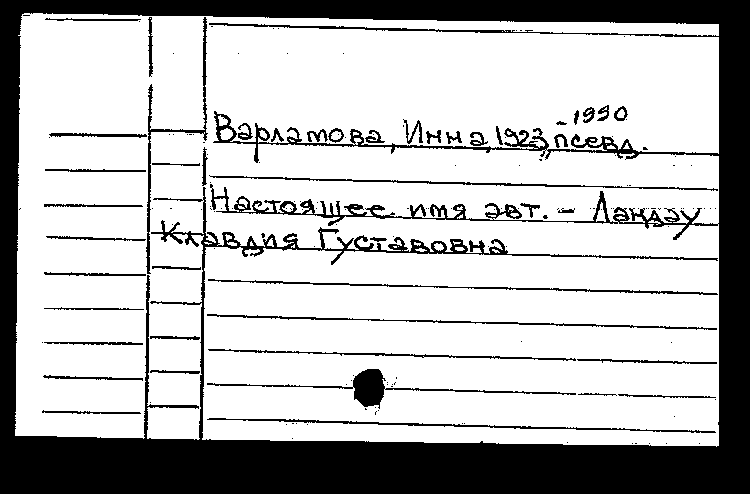 Варламова, Инна, 1923, псевд.
- 1990
Настоящее имя авт. - Ландау
Клавдия Густавовна